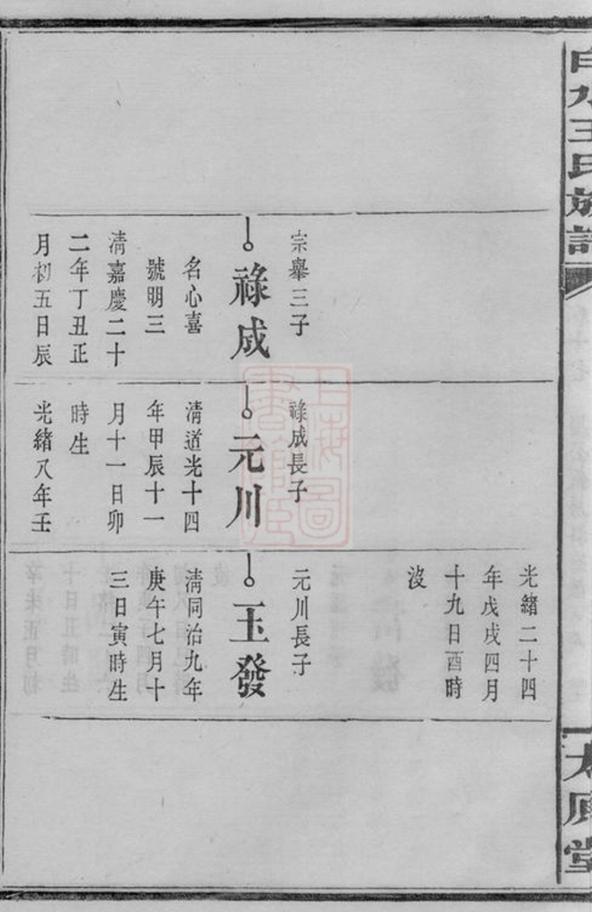 白水王氏族譜
宗舉三子
祿成
名心喜
號明三
清嘉慶二十
二年丁丑正
月初五日辰
祿成長子
元川
清道光十四
年甲辰十一
月十一日卯
時生
光緒八年壬
光緒二十四
年戊戌四月
十九日酉時
沒
元川長子
玉發
清同治九年
庚午七月十
三日寅時生
太原堂
上海圖
書館藏